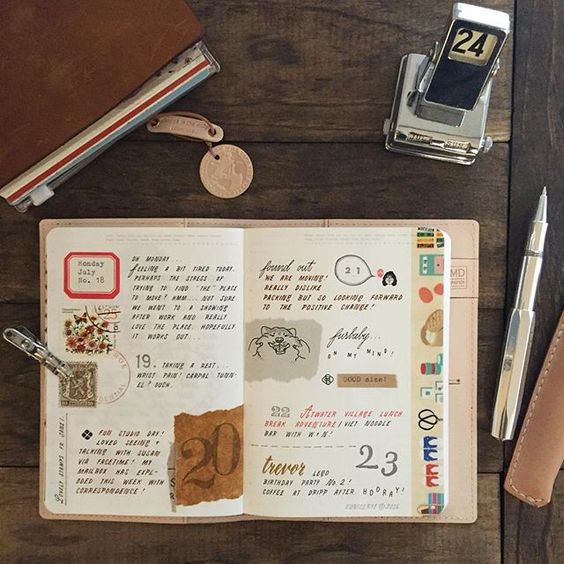 24
Monday
July
No. 18
OH MONDAY...
FEELING A BIT TIRED TODAY.
PERHAPS THE STRESS OF
TRYING TO FIND "THE" PLACE
TO MOVE! HMM... NOT SURE
WE WENT TO A SHOWING
AFTER WORK AND REALLY
LOVE THE PLACE. HOPEFULLY
IT WORKS OUT...
19. TAKING A REST..
WRIST PAIN! CARPAL TUNN-
EL? OUCH.
FUN STUDIO DAY!
LOVED SEEING &
TALKING WITH SUSAN
VIA FACETIME! MY
MAILBOX HAS EXPLO-
DED THIS WEEK WITH
CORRESPONDENCE!
20
found out
WE ARE MOVING!
REALLY DISLIKE
PACKING BUT SO LOOKING FORWARD
TO THE POSITIVE CHANGE!
21
furbaby...
ON MY MIND!
GOOD size!
22 ATWATER VILLAGE LUNCH
BREAK ADVENTURE / VIET NOODLE
BAR WITH W+N!
trevor LEGO
BIRTHDAY PARTY NO. 2!
COFFEE AT DRIPP AFTER HOORAY!
23
MD